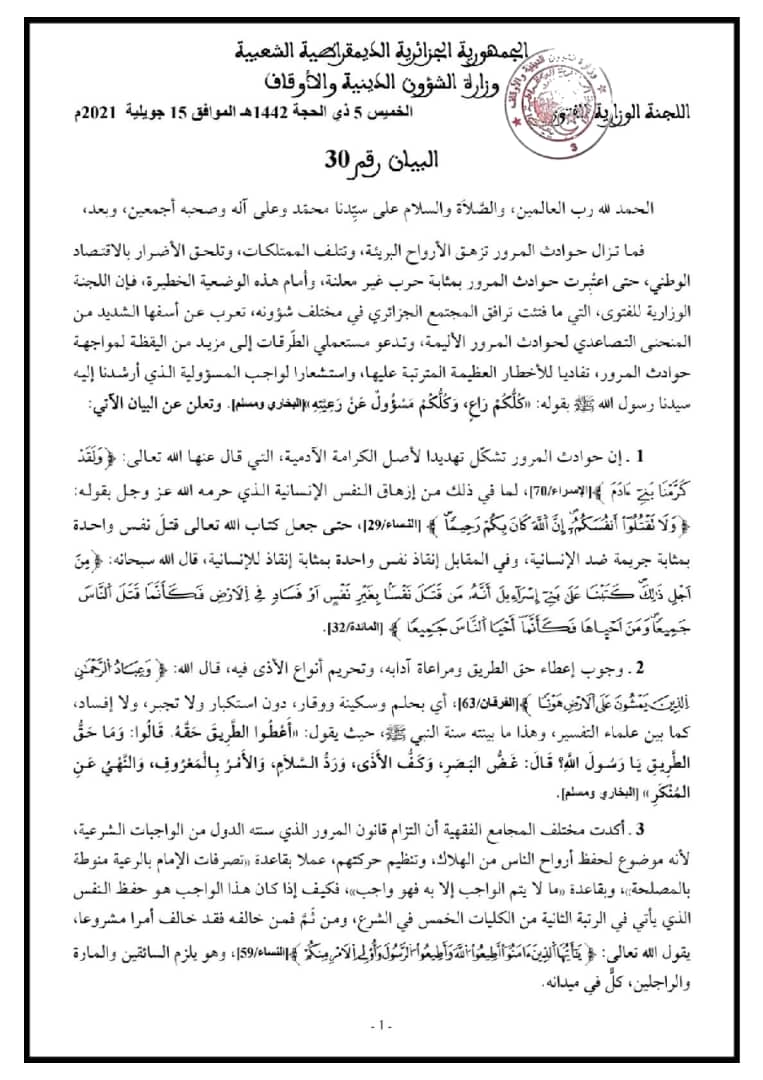 الجمهورية الجزائرية الديمقراطية الشعبية
وزارة الشؤون الدينية والأوقاف
اللجنة الوزارية للفتوى الخميس 5 ذي الحجة 1442هـ الموافق 15 جويلية 2021م
البيان رقم 30
الحمد لله رب العالمين، والصّلاة والسلام على سيّدنا محمّد وعلى آله وصحبه أجمعين، وبعد،
فما تزال حوادث المرور تزهق الأرواح البريئة، وتتلف الممتلكات، وتلحق الأضرار بالاقتصاد
الوطني، حتى اعتُبِرت حوادث المرور بمثابة حرب غير معلنة، وأمام هذه الوضعية الخطيرة، فإن اللجنة
الوزارية للفتوى، التي ما فتئت ترافق المجتمع الجزائري في مختلف شؤونه، تعرب عن أسفها الشديد من
المنحنى التصاعدي لحوادث المرور الأليمة، وتدعو مستعملي الطّرقات إلى مزيد من اليقظة لمواجهة
حوادث المرور، تفاديا للأخطار العظيمة المترتبة عليها، واستشعارا لواجب المسؤولية الذي أرشدنا إليه
سيدنا رسول الله ﷺ بقوله: «كُلُّكُمْ رَاعٍ، وَكُلُّكُمْ مَسْؤُولٌ عَنْ رَعِيَّتِهِ»[البخاري ومسلم]. وتعلن عن البيان الآتي:
1 ـ إن حوادث المرور تشكّل تهديدا لأصل الكرامة الآدمية، التي قال عنها الله تعالى: ﴿وَلَقَدْ
كَرَّمْنَا بَنِےٓ ءَادَمَ﴾[الإسراء/70]، لما في ذلك من إزهاق النفس الإنسانية الذي حرمه الله عز وجل بقوله:
﴿وَلَا تَقْتُلُوٓاْ أَنفُسَكُمُۥٓ إِنَّ اَللَّهَ كَانَ بِكُمْ رَحِيمٗا﴾ [النساء/29]، حتى جعل كتاب الله تعالى قتلَ نفس واحدة
بمثابة جريمة ضد الإنسانية، وفي المقابل إنقاذ نفس واحدة بمثابة إنقاذ للإنسانية، قال الله سبحانه: ﴿مِنَ
اَجْلِ ذَٰلِكَ كَتَبْنَا عَلَىٰ بَنِےٓ إِسْرَآءِيلَ أَنَّهُۥ مَن قَتَلَ نَفْسَۢا بِغَيْرِ نَفْسٍ اَوْ فَسَادٖ فِے اِلَارْضِ فَكَأَنَّمَا قَتَلَ اَلنَّاسَ
جَمِيعٗا وَمَنَ اَحْيِاهَا فَكَأَنَّمَآ أَحْيَا اَلنَّاسَ جَمِيعٗا﴾ [المائدة/32].
2 ـ وجوب إعطاء حق الطريق ومراعاة آدابه، وتحريم أنواع الأذى فيه، قال الله: ﴿وَعِبَادُ اُلرَّحْمَٰنِ
اِلذِينَ يَمْشُونَ عَلَى اَلَارْضِ هَوْنٗا﴾[الفرقان/63]، أي بحلم وسكينة ووقار، دون استكبار ولا تجبر، ولا إفساد،
كما بين علماء التفسير، وهذا ما بينته سنة النبي ﷺ، حيث يقول: «أَعْطُوا الطَّرِيقَ حَقَّهُ. قَالُوا: وَمَا حَقُّ
الطَّرِيقِ يَا رَسُولَ اللَّهِ؟ قَالَ: غَضُّ البَصَرِ، وَكَفُّ الأَذَى، وَرَدُّ السَّلاَمِ، وَالأَمْرُ بِالْمَعْرُوفِ، وَالنَّهْيُ عَنِ
المُنْكَرِ» [البخاري ومسلم].
3 ـ أكدت مختلف المجامع الفقهية أن التزام قانون المرور الذي سنته الدول من الواجبات الشرعية،
لأنه موضوع لحفظ أرواح الناس من الهلاك، وتنظيم حركتهم، عملا بقاعدة «تصرفات الإمام بالرعية منوطة
بالمصلحة»، وبقاعدة «ما لا يتم الواجب إلا به فهو واجب»، فكيف إذا كان هذا الواجب هو حفظ النفس
الذي يأتي في الرتبة الثانية من الكليات الخمس في الشرع، ومن ثَمَّ فمن خالفه فقد خالف أمرا مشروعا،
يقول الله تعالى: ﴿يَٰٓأَيُّهَا اَلذِينَ ءَامَنُوٓاْ أَطِيعُواْ اُللَّهَ وَأَطِيعُواْ اُلرَّسُولَ وَأُوْلِے اِلَامْرِ مِنكُمْ﴾[النساء/59]، وهو يلزم السائقين والمارة
والراجلين، كلٌّ في ميدانه.
- 1 -